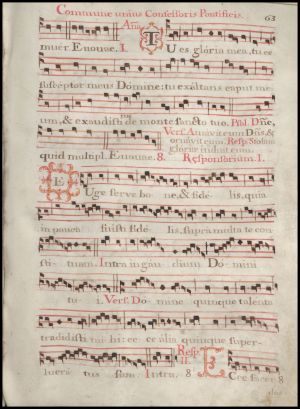 Commune unius Confessoris Pontificis.
63
Ana
muêr. Euouae. I. TU es glória mea, tu es
suscéptor meus Dómine: tu exáltans caput me
um, & exaudísti de monte sancto tuo. Psal. Dñe,
quid multipl. Euouae. 8.
Vers. Amávit eum Dñs, &
ornávit eum. Resp. Stolam
glóriae índuit eum.
Responsórium. I.
EUge serve bone, & fidelis, quia
in pauca fuísti fidélis, supra multa te con
stítuam. Intra in gáudium Dómini
tui. Vers. Dómine quinque talénta
tradidísti mihi: ecce ália quinque super
lucrátus sum. Intra. 8
Resp.
II.
Ecce sacer
8
dos